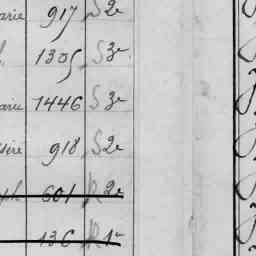 arie 917 S 2e
1305 S 3e
arie 1446 S 3e
918 S 2e
ph 601 R 2e
136 R 1e